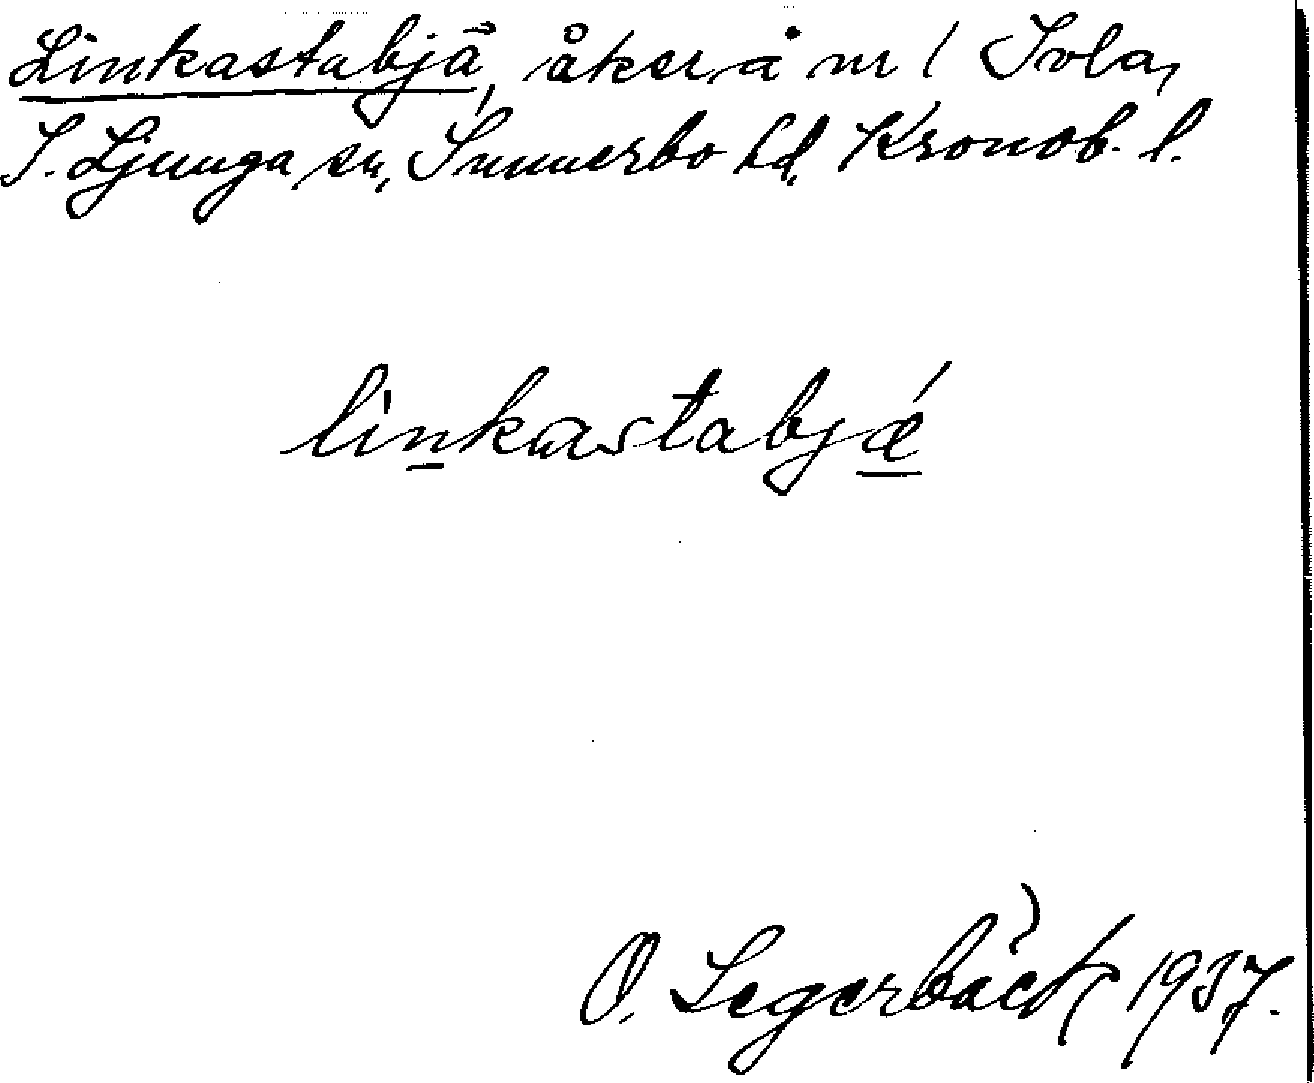 Linkastabjä, åker å nr 1 Ivla,
S. Ljunga sn, Sunnerbo hd, Kronob. l.
linkastabjǽ
O. Segerbäck 1937.